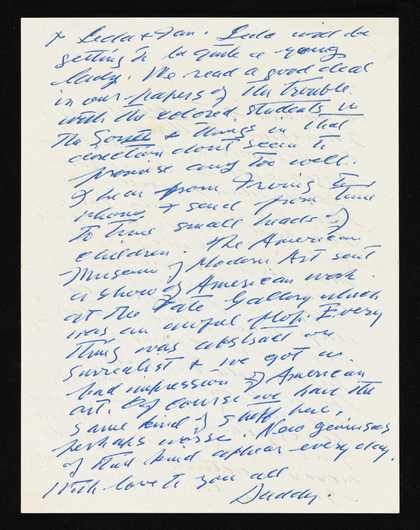 & Leda & Jan. Leda will be
getting to be quite a young
lady. We read a good deal
in our papers of the trouble
with the colored students in
the South & things in that
direction don't seem to
promise any too well.
I hear from Irving
& send from time
to time small heads of
children. The American
Museum of Modern Art sent
a show of American work
at the Tate Gallery which
was an awful flop. Every
thing was abstract or
surrealist & we got a
bad impression of American
art. Of course we have the
same kind of stuff here,
perhaps worse. New geniuses
of that kind appear every day.
With love to you all
Daddy.